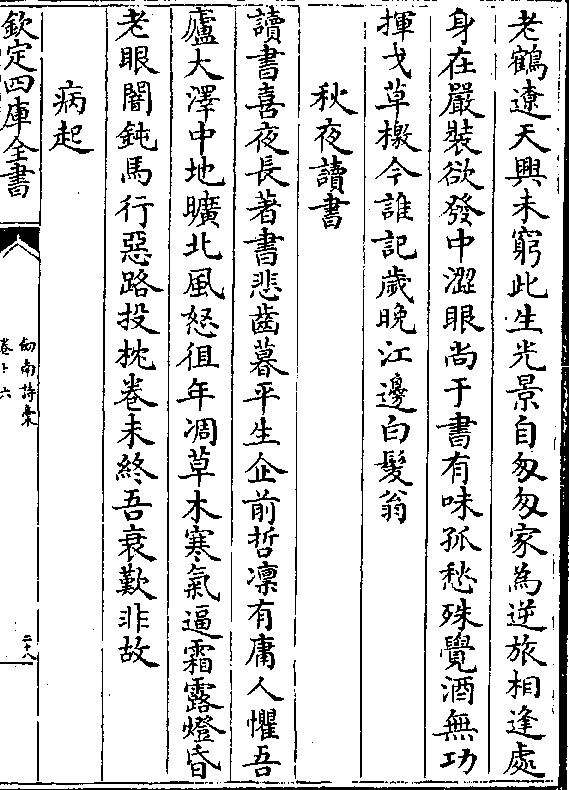 老鶴遼天興未窮此生光景自匆匆家為逆旅相逢處
身在嚴裝欲發中澀眼尚于書有味孤愁殊覺酒無功
揮戈草檄今誰記歲晚江邊白髮翁
秋夜讀書
讀書喜夜長著書悲齒暮平生企前哲凜有庸人懼吾
廬大澤中地曠北風怒徂年凋草木寒氣逼霜露燈昏
老眼闇鈍馬行惡路投枕卷未終吾衰歎非故
病起
欽定四庫全書
劒南詩稾
卷十六
二十八